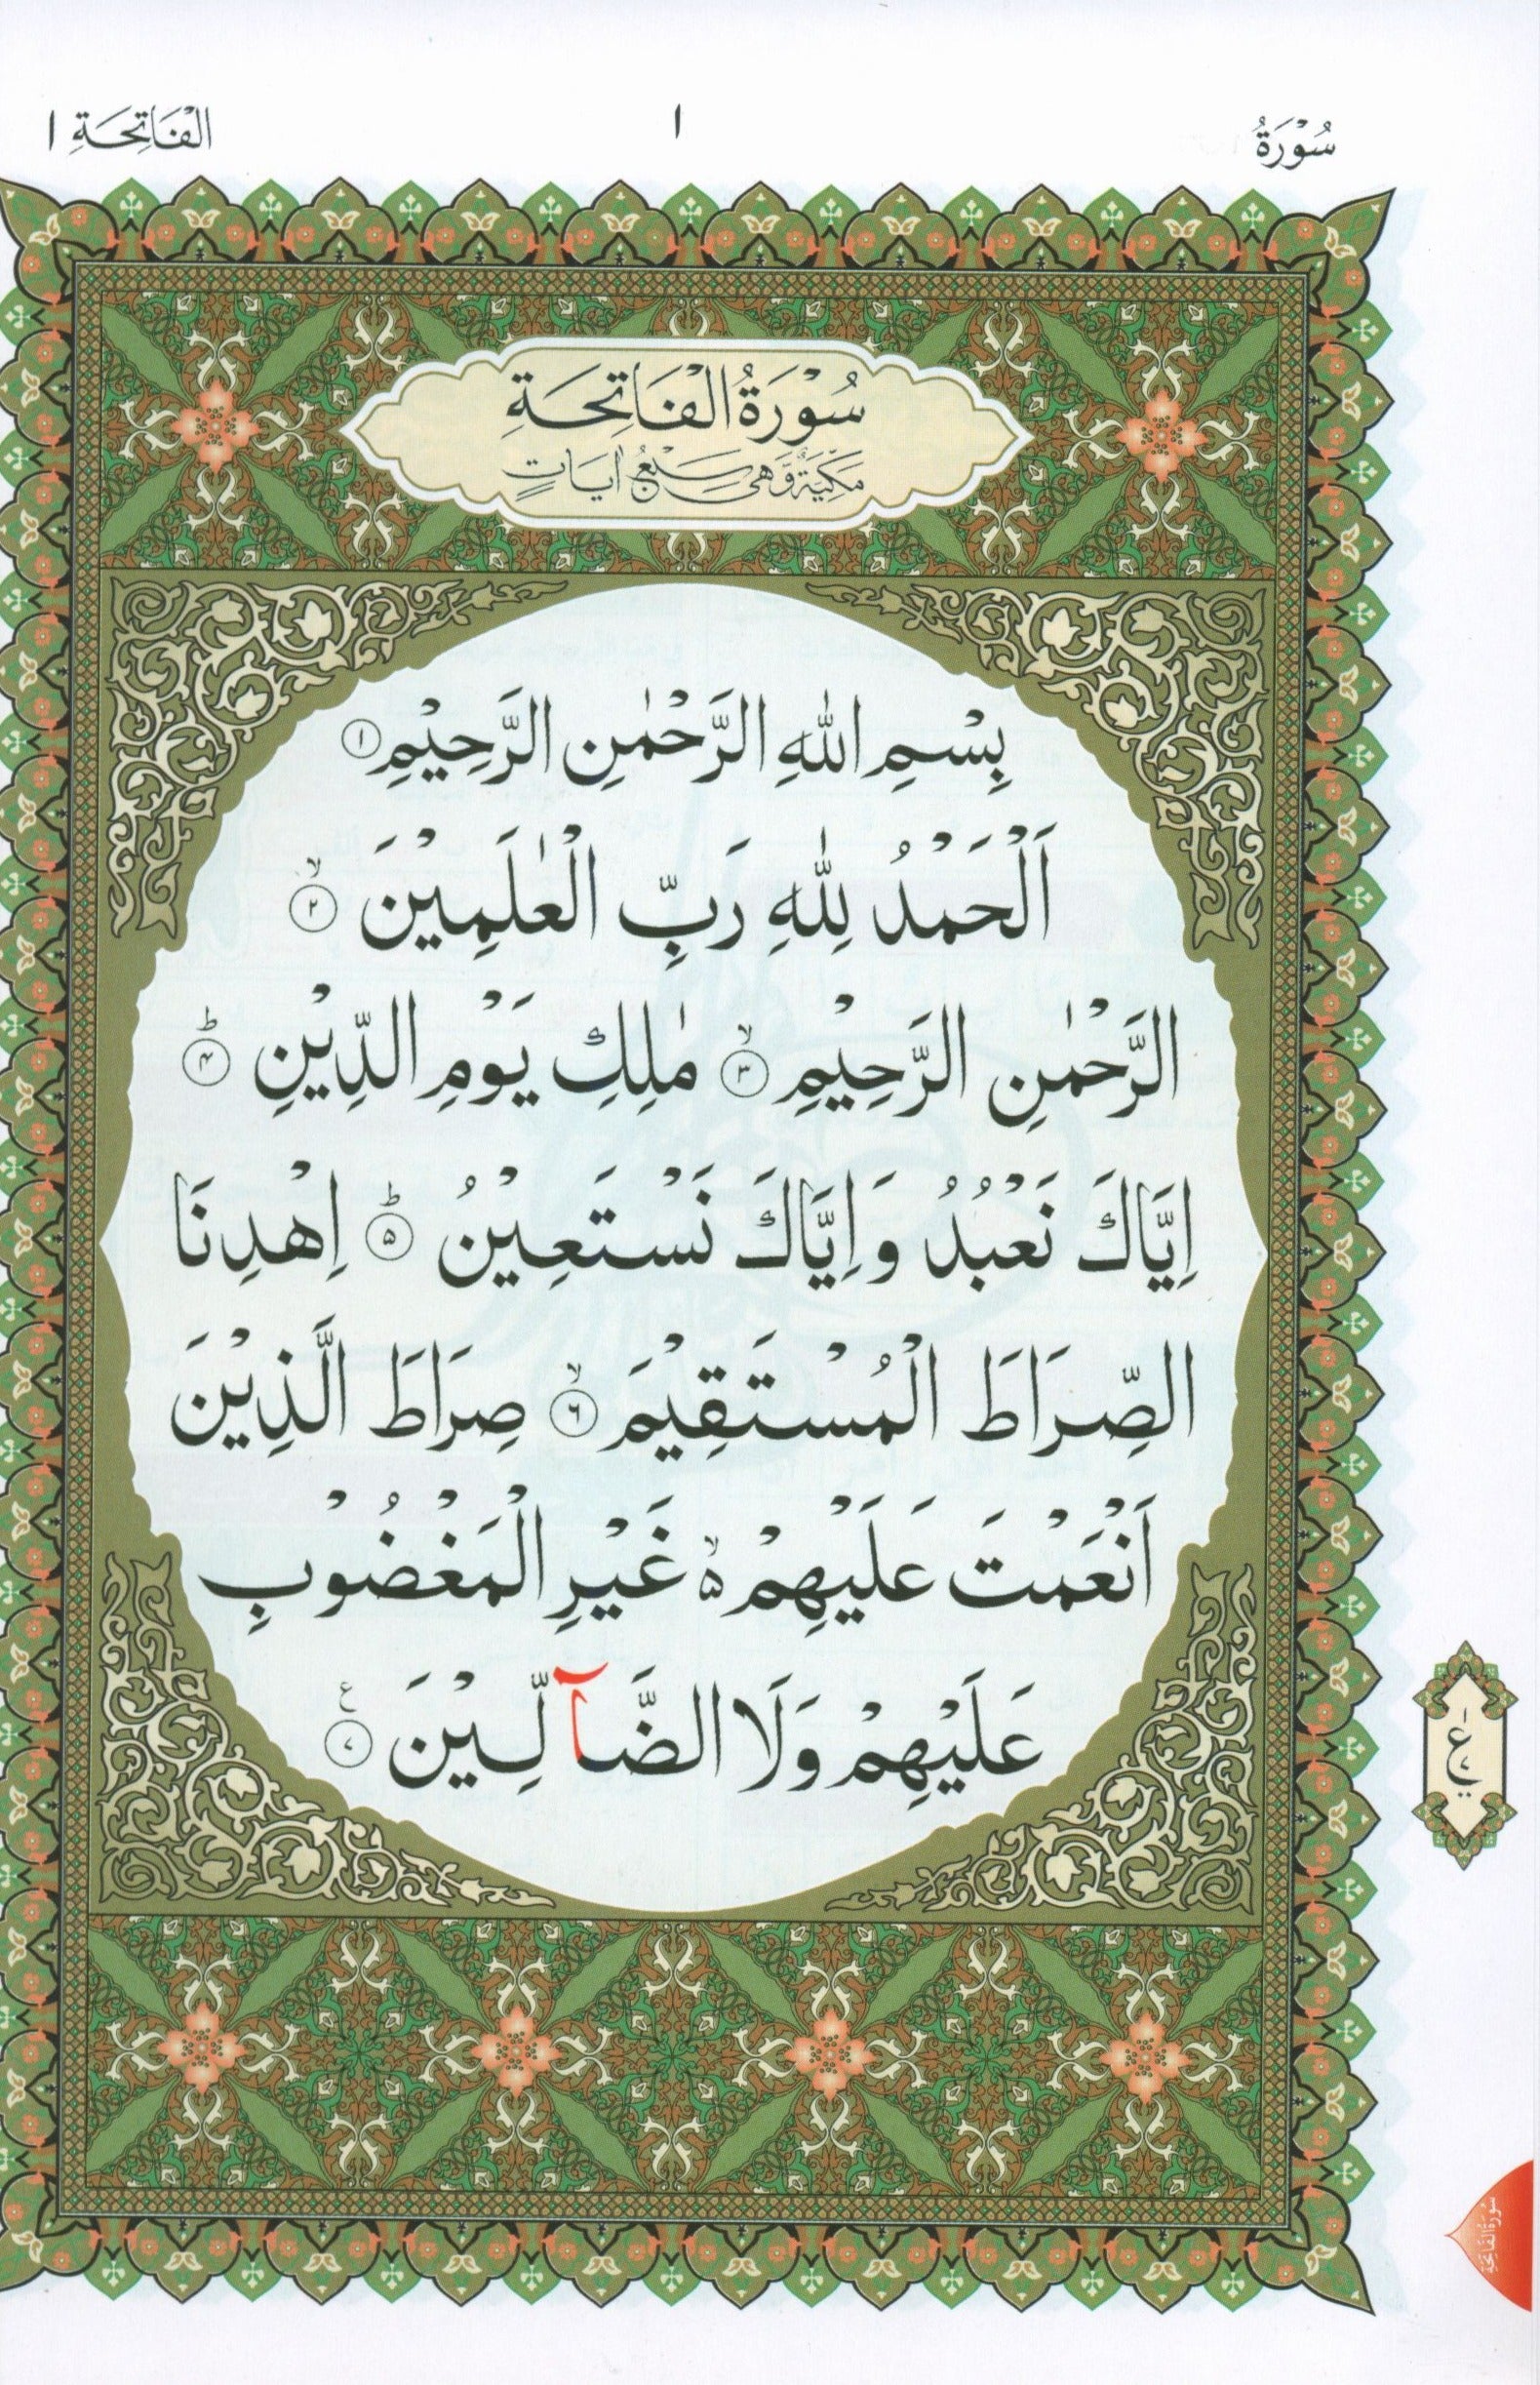 سُوْرَةُ
١
الْفَاتِحَةِ ١
سُوْرَةُ الْفَاتِحَةِ
مَكِّيَّةٌ وَّهِىَ سَبْعُ اٰيَاتٍ
بِسْمِ اللّٰهِ الرَّحْمٰنِ الرَّحِيْمِ ۝١
اَلْحَمْدُ لِلّٰهِ رَبِّ الْعٰلَمِيْنَ ۙ‏۝٢
الرَّحْمٰنِ الرَّحِيْمِ ۙ‏۝٣ مٰلِكِ يَوْمِ الدِّيْنِ ؕ‏۝٤
اِيَّاكَ نَعْبُدُ وَاِيَّاكَ نَسْتَعِيْنُ ؕ‏۝٥ اِهْدِنَا
الصِّرَاطَ الْمُسْتَقِيْمَ ۙ‏۝٦ صِرَاطَ الَّذِيْنَ
اَنْعَمْتَ عَلَيْهِمْ ۙ۵ غَيْرِ الْمَغْضُوْبِ
عَلَيْهِمْ وَلَا الضَّآلِّيْنَ ۝٧ ع
١
ع
٧
سُوْرَةُ الْفَاتِحَةِ